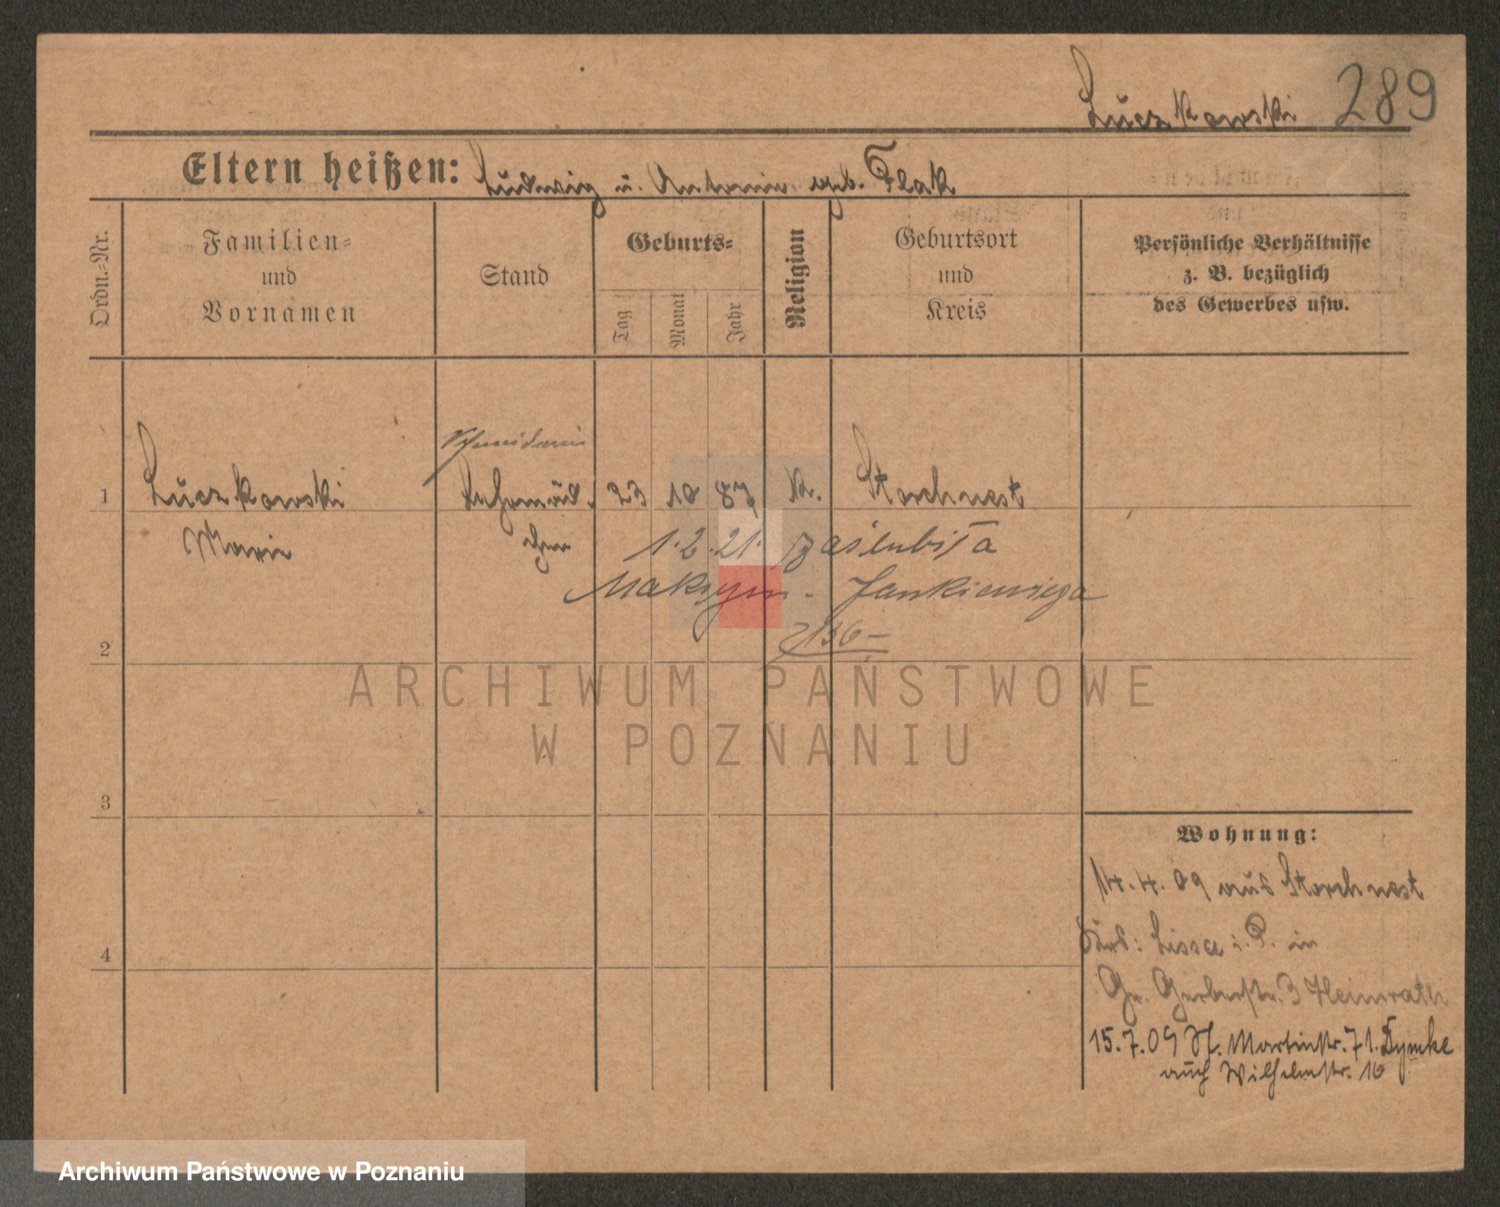 Luczkowski 289
Eltern heißen: Ludwig u. Antonie geb. Flak
Ordn.=Nr.
Familien=
und
Vornamen
Stand
Geburts=
Tag
Monat
Jahr
Religion
Geburtsort
und
Kreis
Persönliche Verhältnisse
z. B. bezüglich
des Gewerbes usw.
1 Luczkowski 23 10 87 K. Storchnest
Marie
1.2.21. zaślubiła
Maksym. Jankiewicza
2
3
4
Wohnung:
14.4.09 aus Storchnest
Lissa i. P. in
Gr. Gerberstr. 3 Heimrath
15.7.09 St. Martinstr. 71. Dymke
auch Wilhelmstr. 16
ARCHIWUM PAŃSTWOWE
W POZNANIU
Archiwum Państwowe w Poznaniu